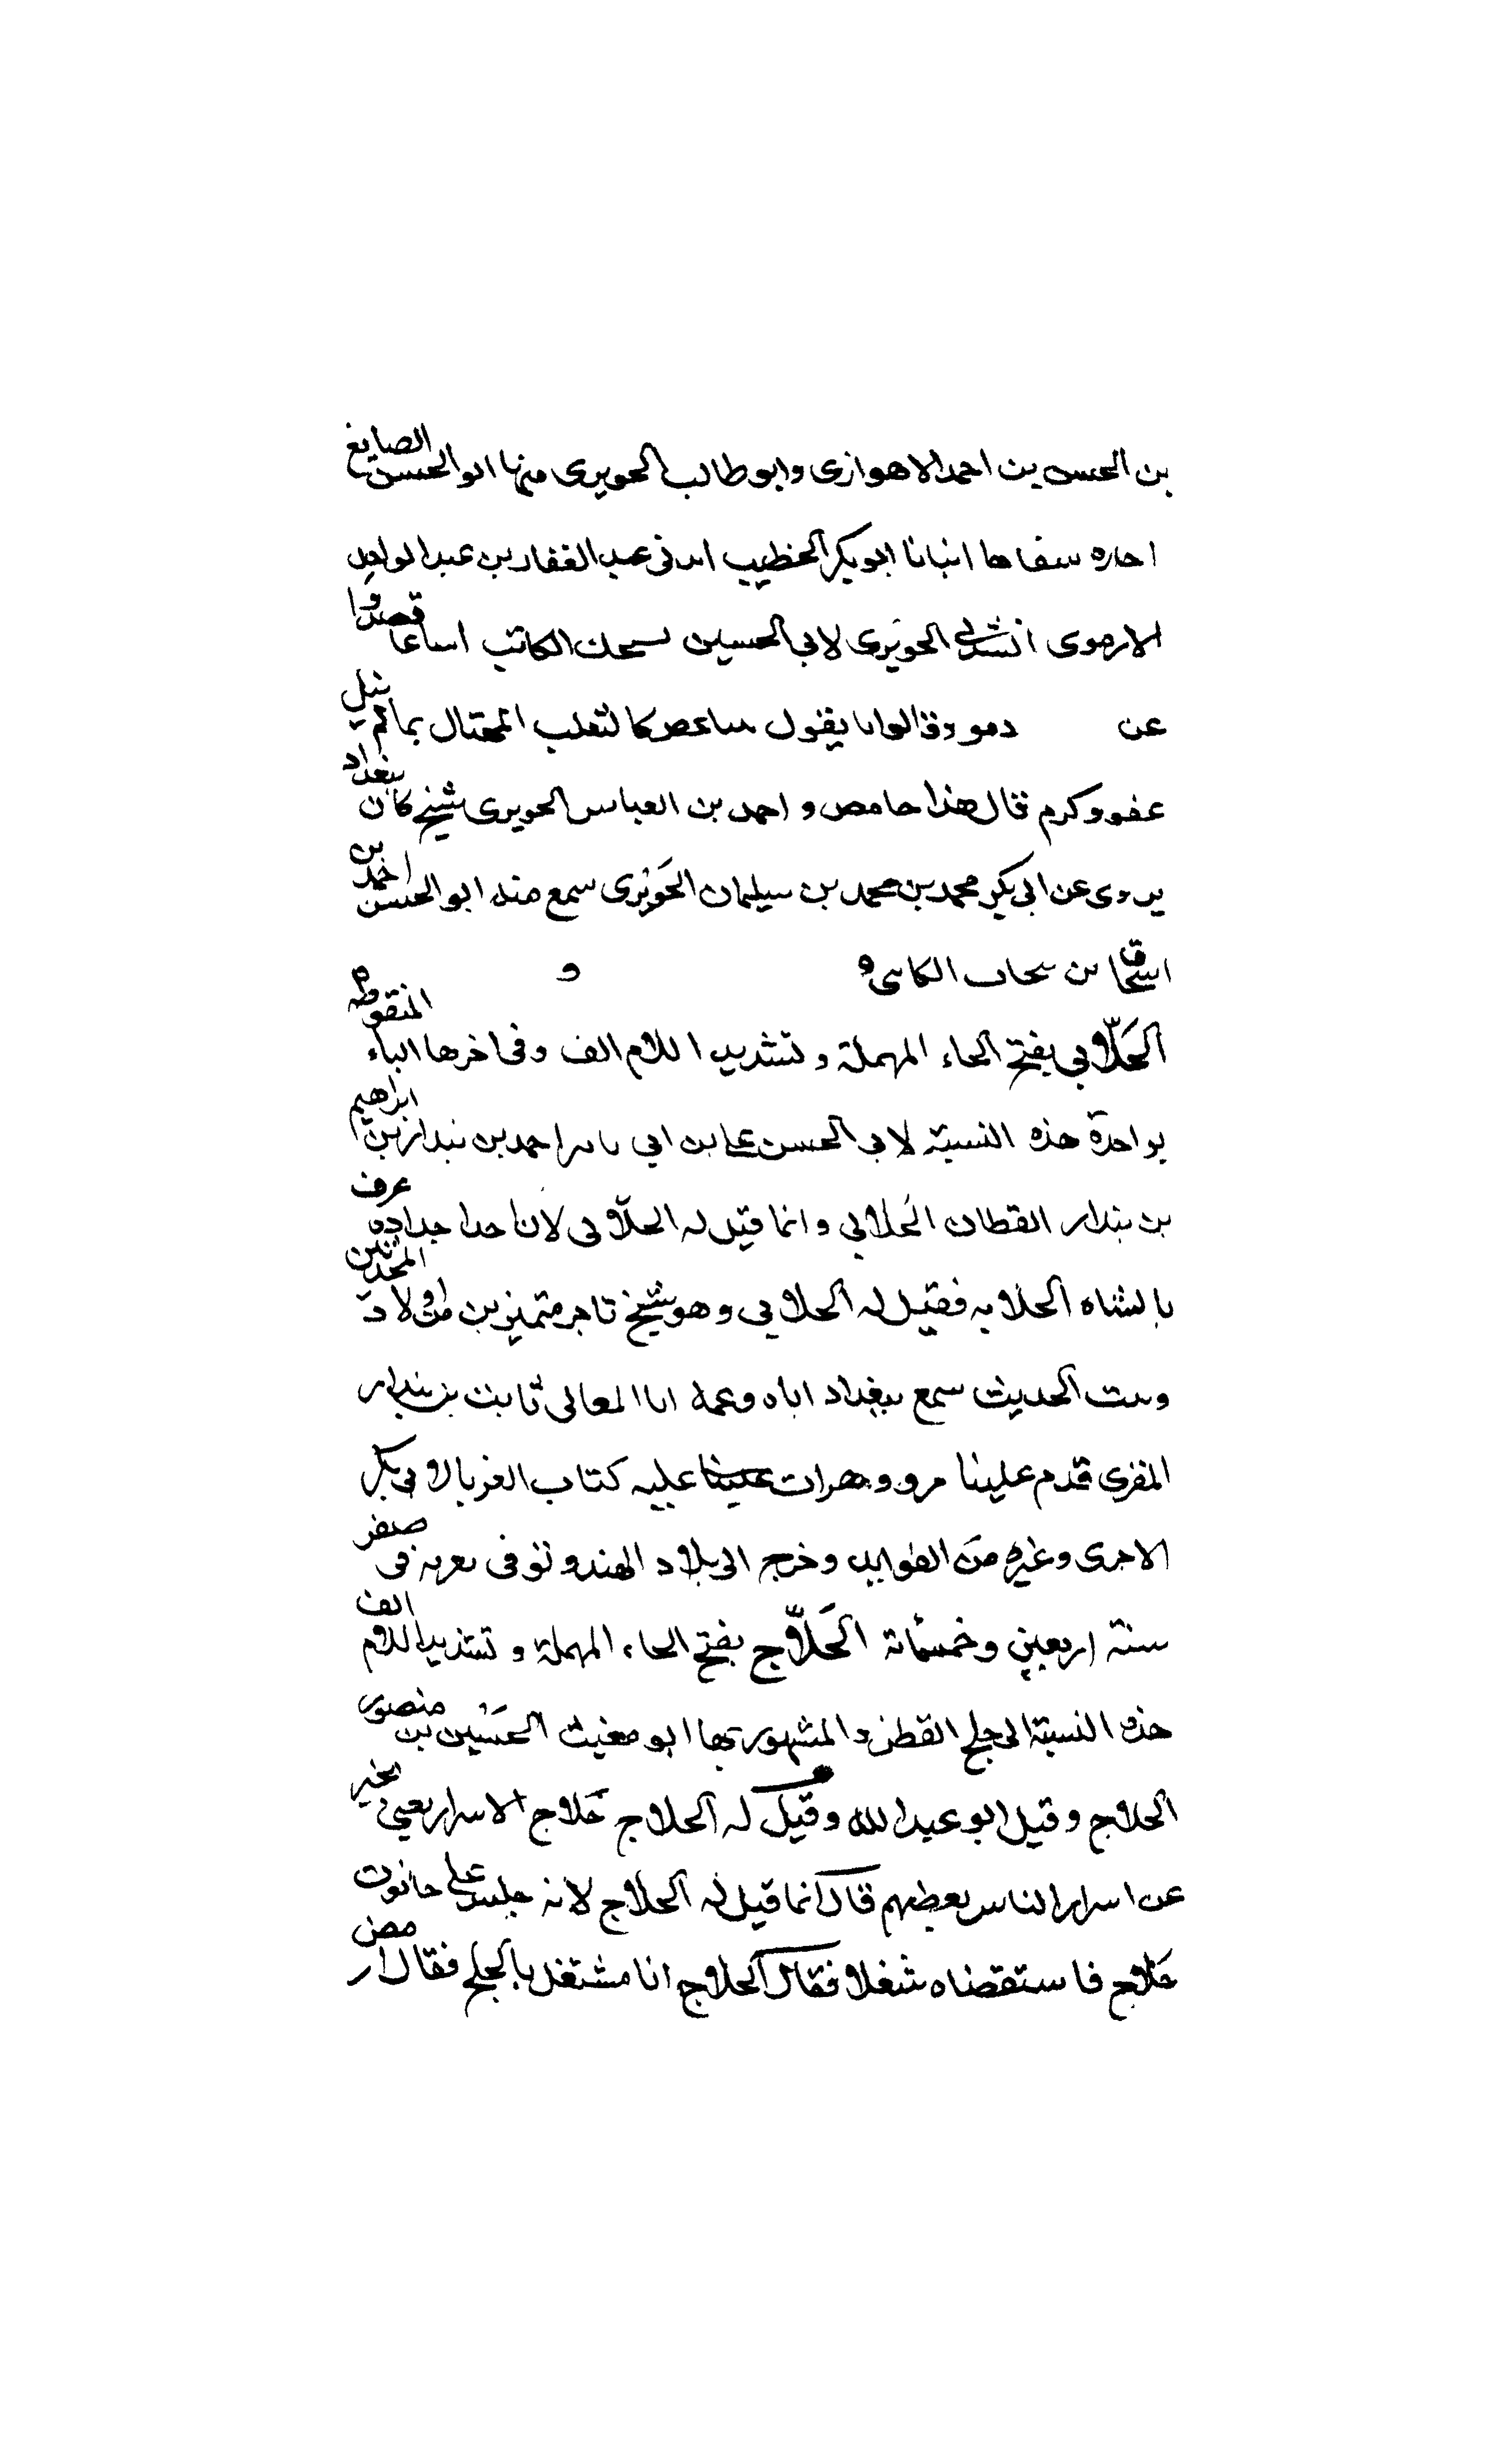 بن الحسن بن احمد الاهوازى وابو طالب الحويزى منها ابو الحسن الصايغ
احاره سفاها انبانا ابو بكر الخطيب عبد الغفار بن عبد الواحد
الارموى انشدنى الحويزى لابى الحسين الكاتب قصدوا
عن يقول كالثعلب المحتال
عفو وكرم قال هذا حامض و احمد بن العباس الحويزى شيخ كان ببغداد
يروى عن ابى بكر محمد بن محمد بن سيلمان الحَوِيْزى سمع منه ابو الحسن احمد بن
اسحاق بن
الحَلّابي بفتح الحاء المهملة و تشديد اللام الف وفى اخرها الباء المنقوطه
بواحدة هذه النسبة لابى الحسن على بن ابي احمد بن بندار بن ابراهيم
بن بندار القطان الحَلابي وانما قيل له الحلّابى لان احد اجداده عرف
بالشاه الحلابه فقيل له الحلابي وهو شيخ تاجر متميز من اولاد المحدثين
وبيت الحديث سمع ببغداد اباه وعمه ابا المعالى ثابت بن بندار
المقرى قدم علينا مرو وقرات عليه كتاب الغربا لابى بكر
الاجرى وغيره من الفوايد وخرج الى بلاد الهند وتوفى فى صفر
سنة اربعين وخمسمائة الحَلّاج بفتح الحاء المهملة و تشديد اللام الف
هذه النسبة الى حلج القطن والمشهور بها ابو مغيث الحُسَيْن بن منصور
الحلاج وقيل ابو عبد الله وقيل له الحلاج حَلاج الاسرار يعنى يخبر
عن اسرار الناس قال انما قيل له الحلاج لانه جلس على حانوت
حَلاج فاستقضاه شغلا فقال الحلاج انا مشتغل بالحلج فقال له